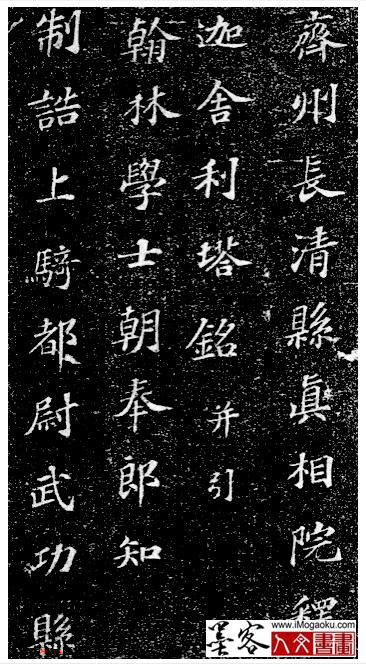 齊州長清縣眞相院釋
迦舍利塔銘并引
翰林學士朝奉郎知
制誥上騎都尉武功縣
墨客
www.iMogaoku.com
人文書畫